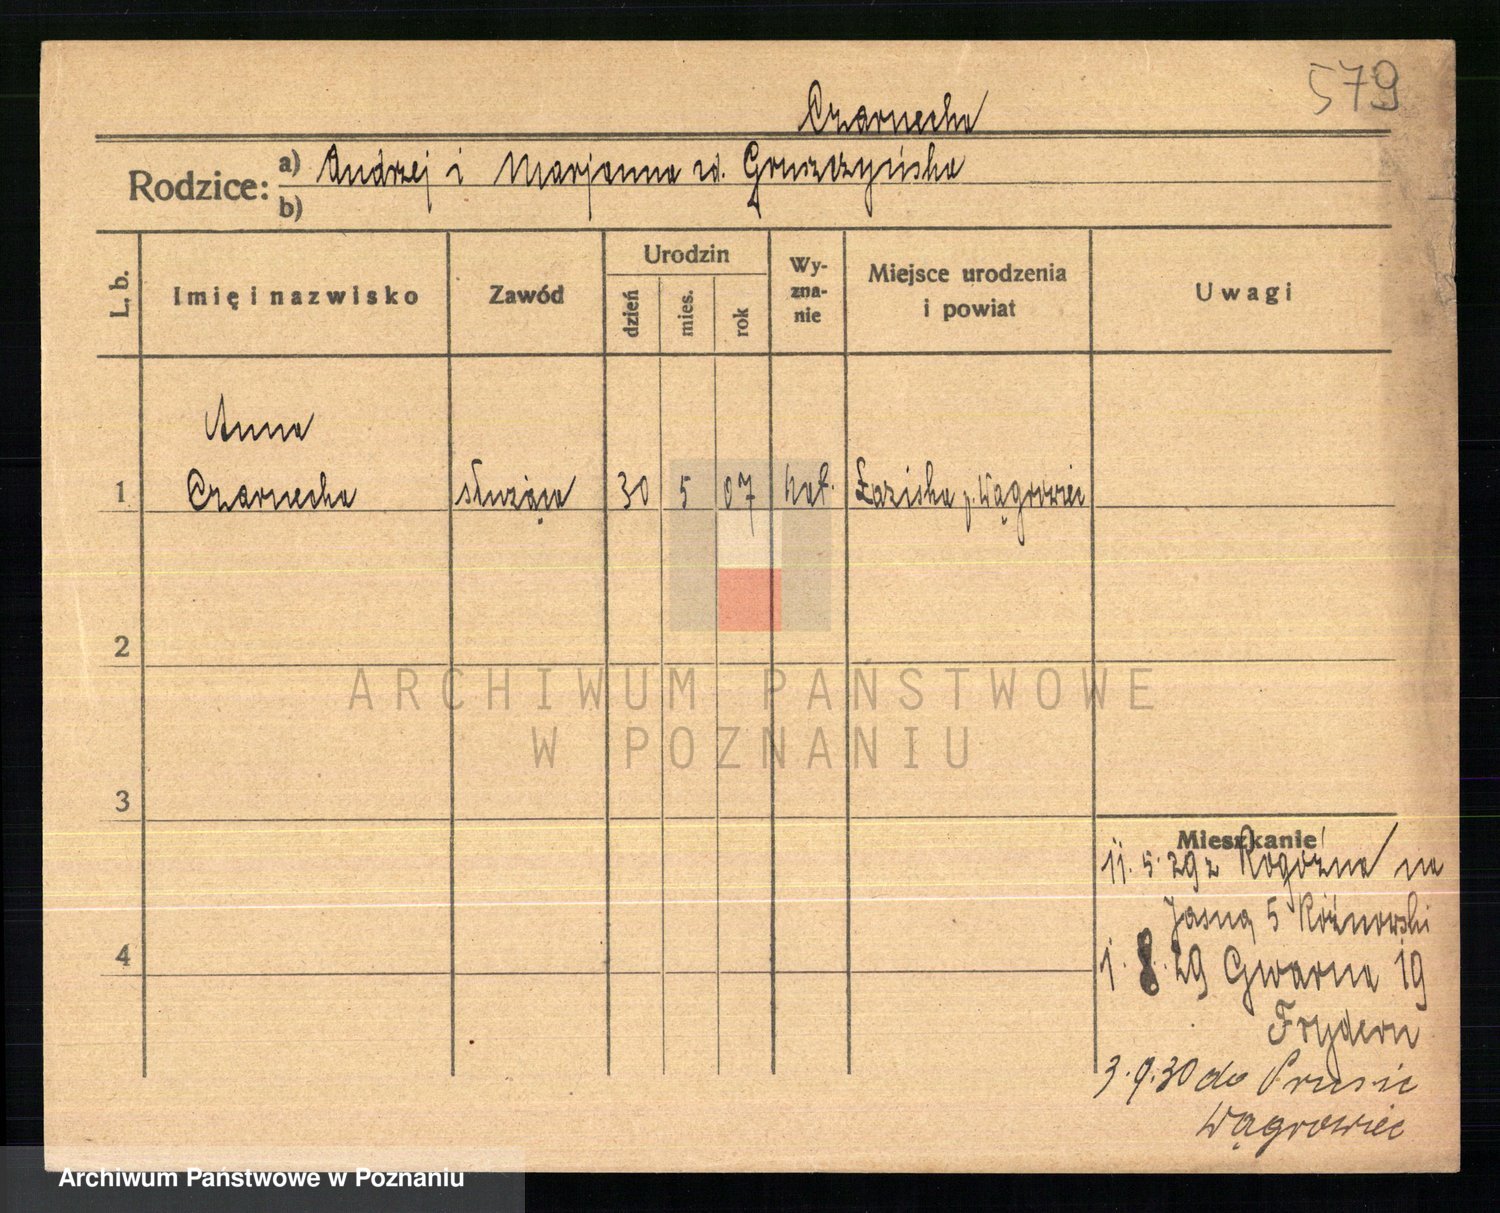 579
Czarnecka
Rodzice: a) Andrzej i Marjanna zd. Gruszczyńska
b)
L. b.
Imię i nazwisko
Zawód
Urodzin
dzień
mies.
rok
Wy-
zna-
nie
Miejsce urodzenia
i powiat
Uwagi
Anna
1 Czarnecka służąca 30 5 07 kat. Łaziska p. Wągrowiec
2
ARCHIWUM PAŃSTWOWE
W POZNANIU
3
Mieszkanie
11.5.29 z Rogoźna na
Jasną 5 Różnowski
4
1.8.29 Gwarna 19
Frydern
3.9.30 do Prusic
Wągrowiec
Archiwum Państwowe w Poznaniu